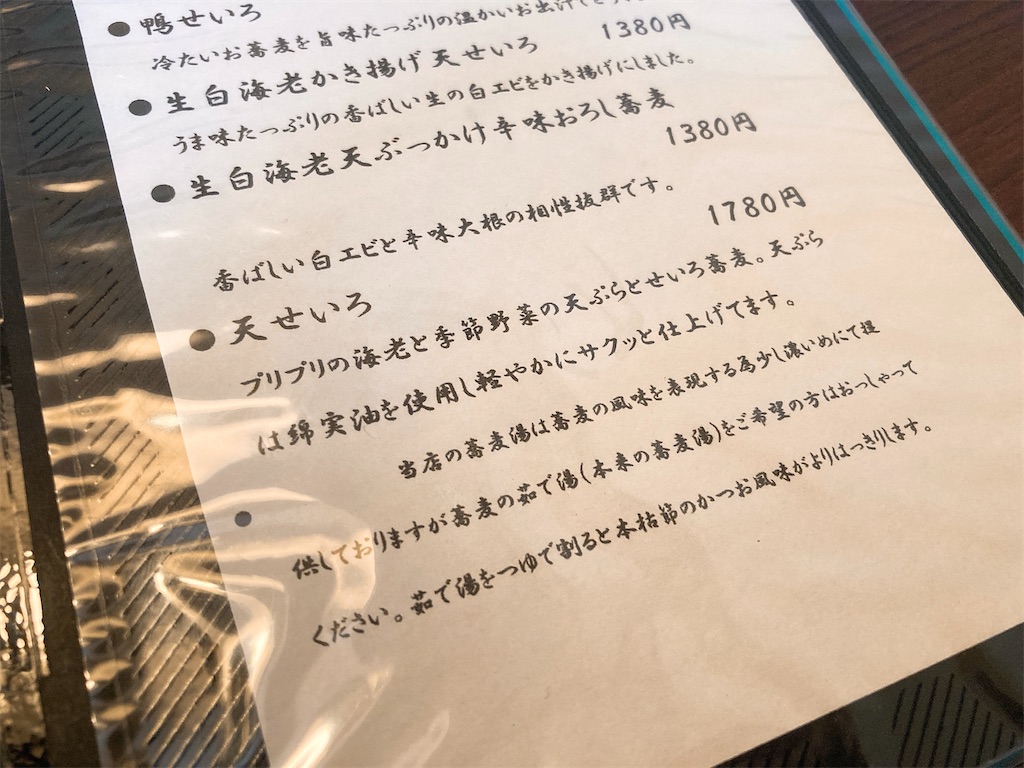 ●鴨せいろ
冷たいお蕎麦を旨味たっぷりの温かいお出汁で
1380円
●生白海老かき揚げ天せいろ
うま味たっぷりの香ばしい生の白エビをかき揚げにしました。
1380円
●生白海老天ぶっかけ辛味おろし蕎麦
香ばしい白エビと辛味大根の相性抜群です。
1780円
●天せいろ
プリプリの海老と季節野菜の天ぷらとせいろ蕎麦。天ぷら
は綿実油を使用し軽やかにサクッと仕上げてます。
●当店の蕎麦湯は蕎麦の風味を表現する為少し濃いめにて提
供しておりますが蕎麦の茹で湯(本来の蕎麦湯)をご希望の方はおっしゃって
ください。茹で湯をつゆで割ると本枯節のかつお風味がよりはっきりします。